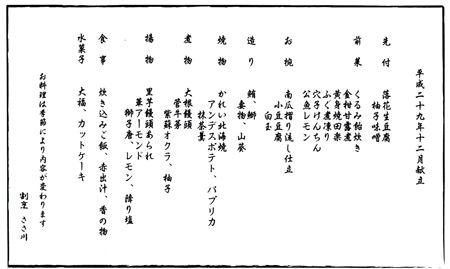 平成二十九年十二月献立
先付 落花生豆腐
柚子味噌
前菜 くるみ飴炊き
金柑甘露煮
黄身焼田楽
ふぐ煮凍り
穴子けんちん
公魚レモン
お椀 南瓜摺り流し仕立
小豆豆腐
白玉
造り 鮪、鰤
妻物、山葵
焼物 かれい北海焼
アンデスポテト、パプリカ
抹茶薯
煮物 大根饅頭
管牛蒡
紫蘇オクラ、柚子
揚物 里芋饅頭あられ
菓アーモンド
獅子唐、レモン、降り塩
食事 炊き込みご飯、赤出汁、香の物
水菓子 大福、カットケーキ
お料理は季節により内容が変わります
割烹 ささ川